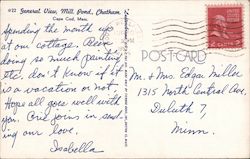 #22 General View, Mill Pond, Chatham
Cape Cod, Mass.
Spending the month up
at our cottage. Been
doing so much painting
etc. don't know if it
is a vacation or not.
Hope all goes well with
you. joins in send-
ing our love.
Isabella
POST CARD
Mr. & Mrs. Edgar Miller
1315 North Central Ave.
Duluth 7,
Minn.